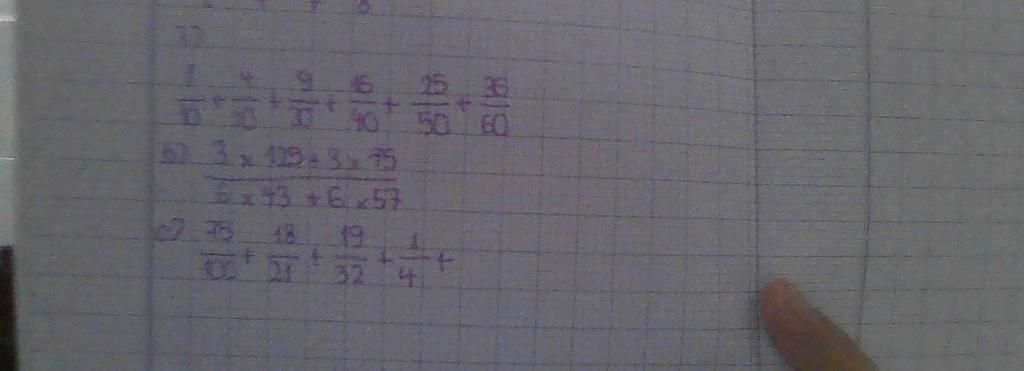 1/10 + 4/20 + 9/30 + 16/40 + 25/50 + 36/60
b) 3 x 125 + 3 x 75 / 6 x 43 + 6 x 57
c) 75/100 + 18/21 + 19/32 + 1/4 +